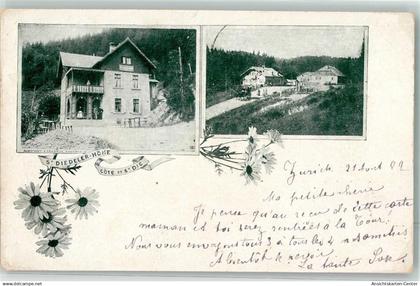 St DIEDELER-HÖHE
CÔTE DE St DIÉ
Zurich 21 Août 99
Ma petite chérie
Je pense qu'au reçu de cette carte
maman et toi serez rentrées à la Tour!
Nous vous envoyons tous 3 à tous les 4 nos amitiés
A bientôt le revoir
La tante
Ansichtskarten-Center